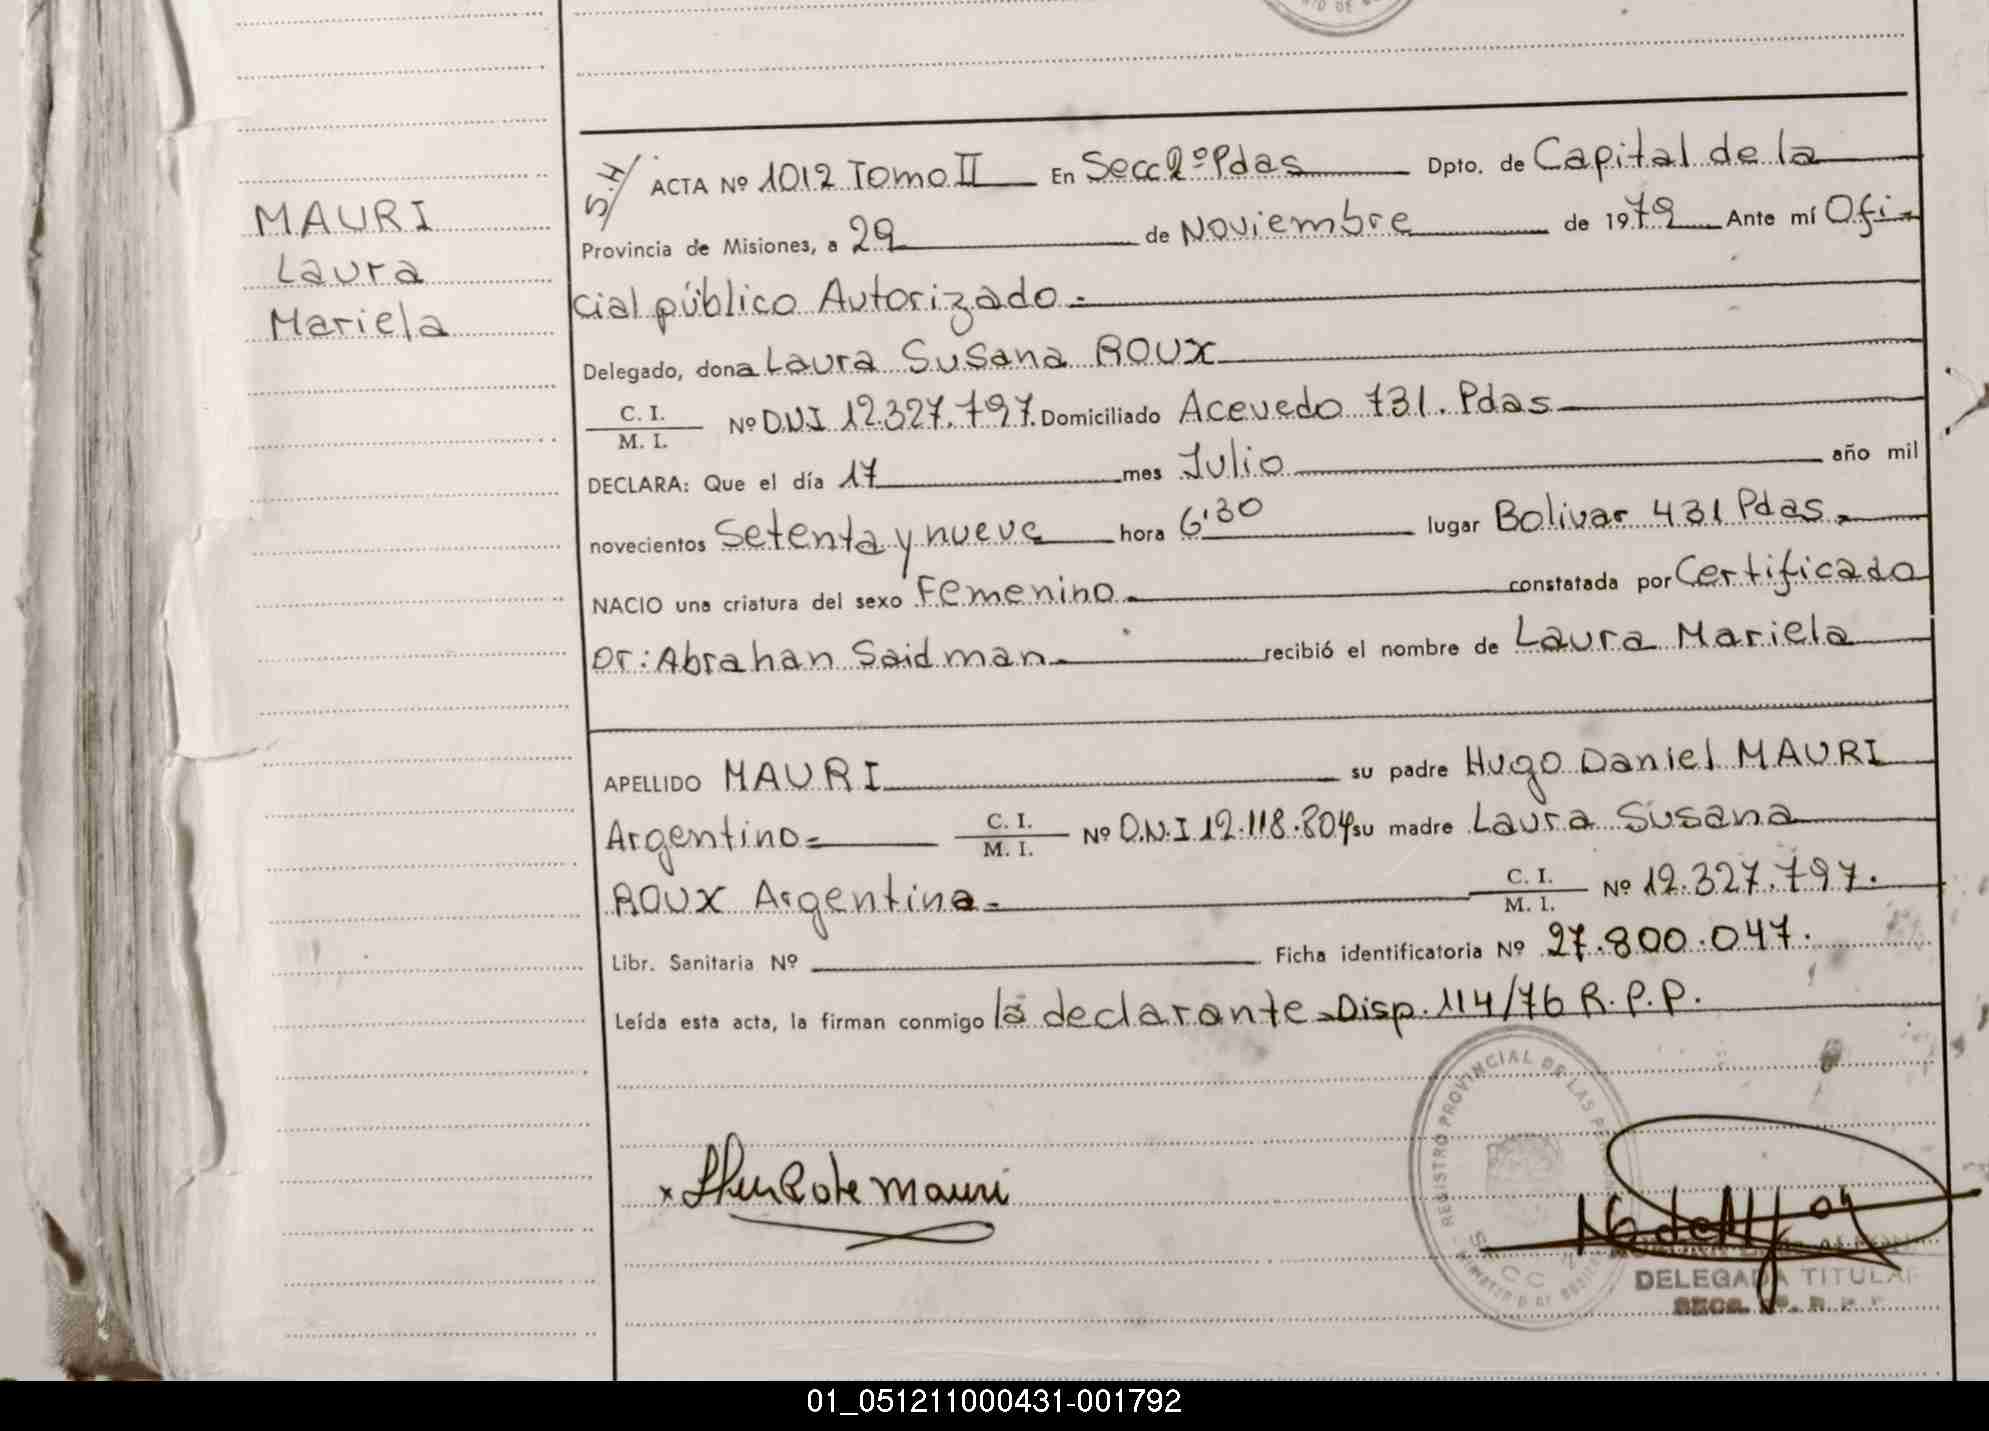 MAURI
Laura
Mariela
S.H/ ACTA Nº 1012 Tomo II En Secc 2º Pdas Dpto. de Capital de la
Provincia de Misiones, a 29 de Noviembre de 1979 Ante mí Ofi-
cial público Autorizado.-
Delegado, dona Laura Susana ROUX
C. I.
M. I. Nº D.N.I 12.327.797. Domiciliado Acevedo 731. Pdas
DECLARA: Que el día 17 mes Julio año mil
novecientos Setenta y nueve hora 6'30 lugar Bolivar 431 Pdas.
NACIO una criatura del sexo Femenino constatada por Certificado
Dr: Abrahan Saidman recibió el nombre de Laura Mariela
APELLIDO MAURI su padre Hugo Daniel MAURI
Argentino C. I. M. I. Nº D.N.I 12.118.804 su madre Laura Susana
ROUX Argentina C. I. M. I. Nº 12.327.797.
Libr. Sanitaria Nº Ficha identificatoria Nº 27.800.047.
Leída esta acta, la firman conmigo la declarante Disp. 114/76 R.P.P.
REGISTRO PROVINCIAL DE LAS
SECC
Mauri
DELEGADA TITULAR
01_051211000431-001792